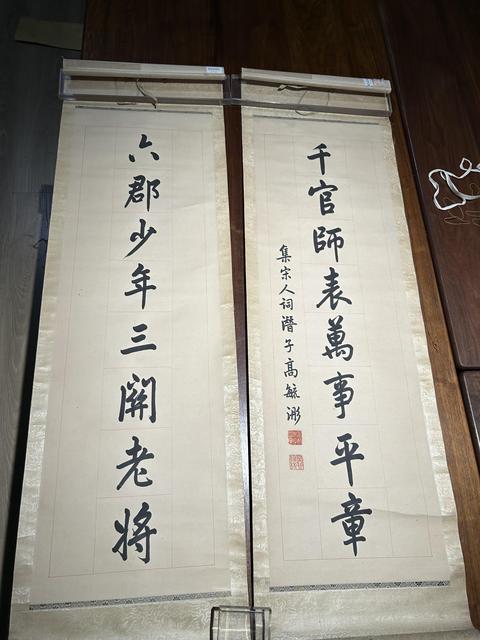 千官師表萬事平章
集宋人詞潛子高毓浵
六郡少年三關老將